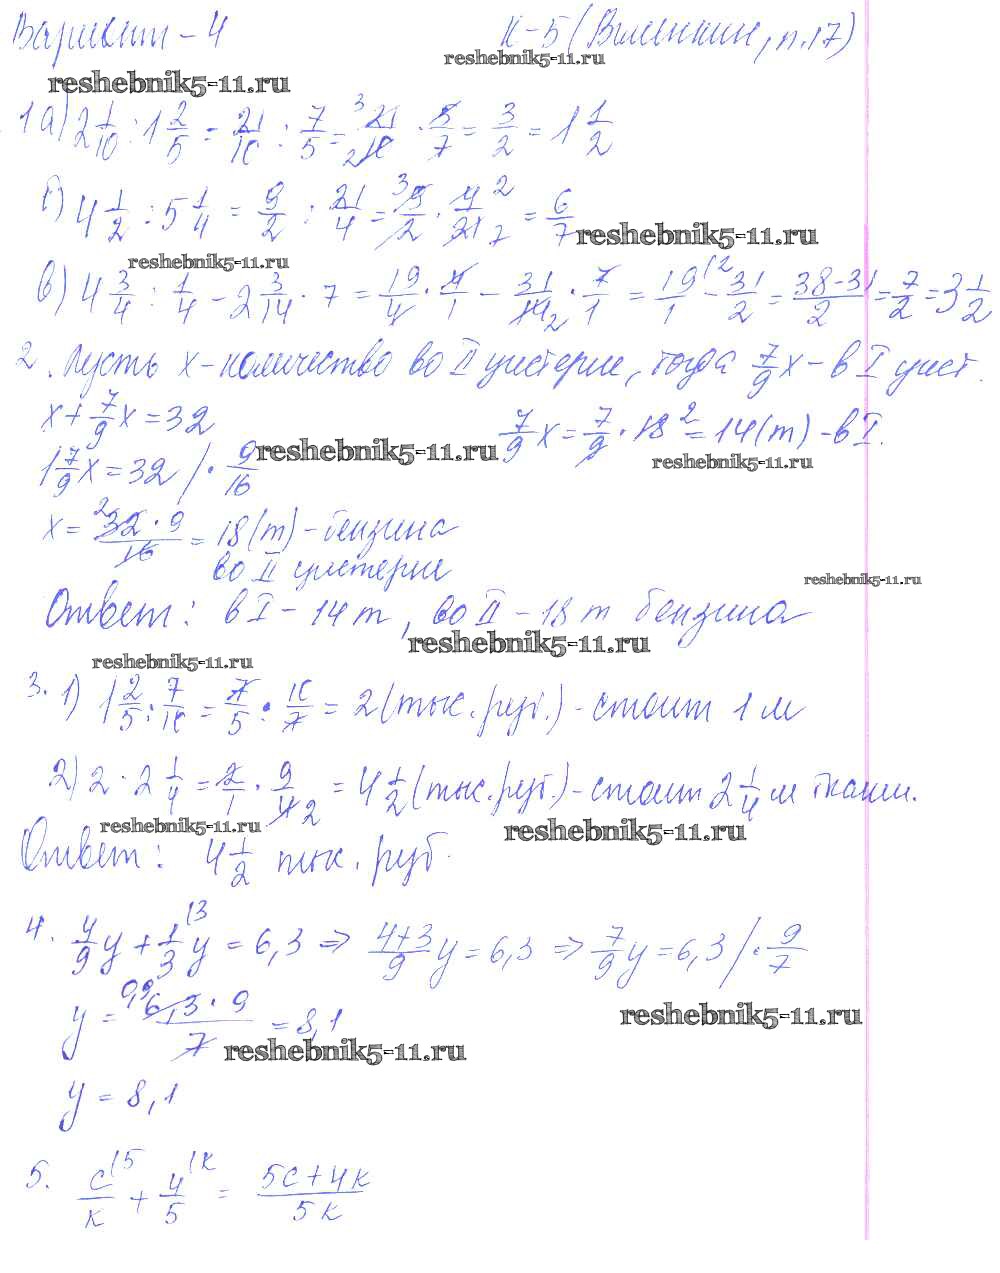 Вариант – 4 К – 5 (Виленкин, п.17)
reshebnik5-11.ru
reshebnik5-11.ru
1 а) 2 1/10 : 1 2/5 = 21/10 : 7/5 = 3 21/2 10 · 5/7 = 3/2 = 1 1/2
б) 4 1/2 : 5 1/4 = 9/2 : 21/4 = 3 9/2 · 4 2/21 7 = 6/7
reshebnik5-11.ru
reshebnik5-11.ru
в) 4 3/4 : 1/4 – 2 3/14 · 7 = 19/4 · 4/1 – 31/14 2 · 7/1 = 19 (2/1 – 31/2 = 38 – 31/2 = 7/2 = 3 1/2
2. Пусть х – количество во II цистерне, тогда 7/9 х – в I цист.
х + 7/9 х = 32 7/9 х = 7/9 · 18 2 = 14 (т) – в I.
1 7/9 х = 32 / · 9/16
reshebnik5-11.ru
reshebnik5-11.ru
х = 2 32 · 9/16 = 18 (т) – бензина
во II цистерне
reshebnik5-11.ru
Ответ: в I – 14 т, во II – 18 т бензина
reshebnik5-11.ru
reshebnik5-11.ru
3. 1) 1 2/5 : 7/10 = 7/5 · 10/7 = 2 (тыс. руб.) – стоит 1 м
2) 2 · 2 1/4 = 2/1 · 9/4 2 = 4 1/2 (тыс. руб.) – стоит 2 1/4 м ткани.
reshebnik5-11.ru
reshebnik5-11.ru
Ответ: 4 1/2 тыс. руб.
4. 4/9 y + 1 (3/3 y = 6,3 => 4+3/9 y = 6,3 => 7/9 y = 6,3 / · 9/7
y = 0,9 6,3 · 9/7 = 8,1
reshebnik5-11.ru
reshebnik5-11.ru
y = 8,1
5. с (5/к + 4 (к/5 = 5с + 4к/5к